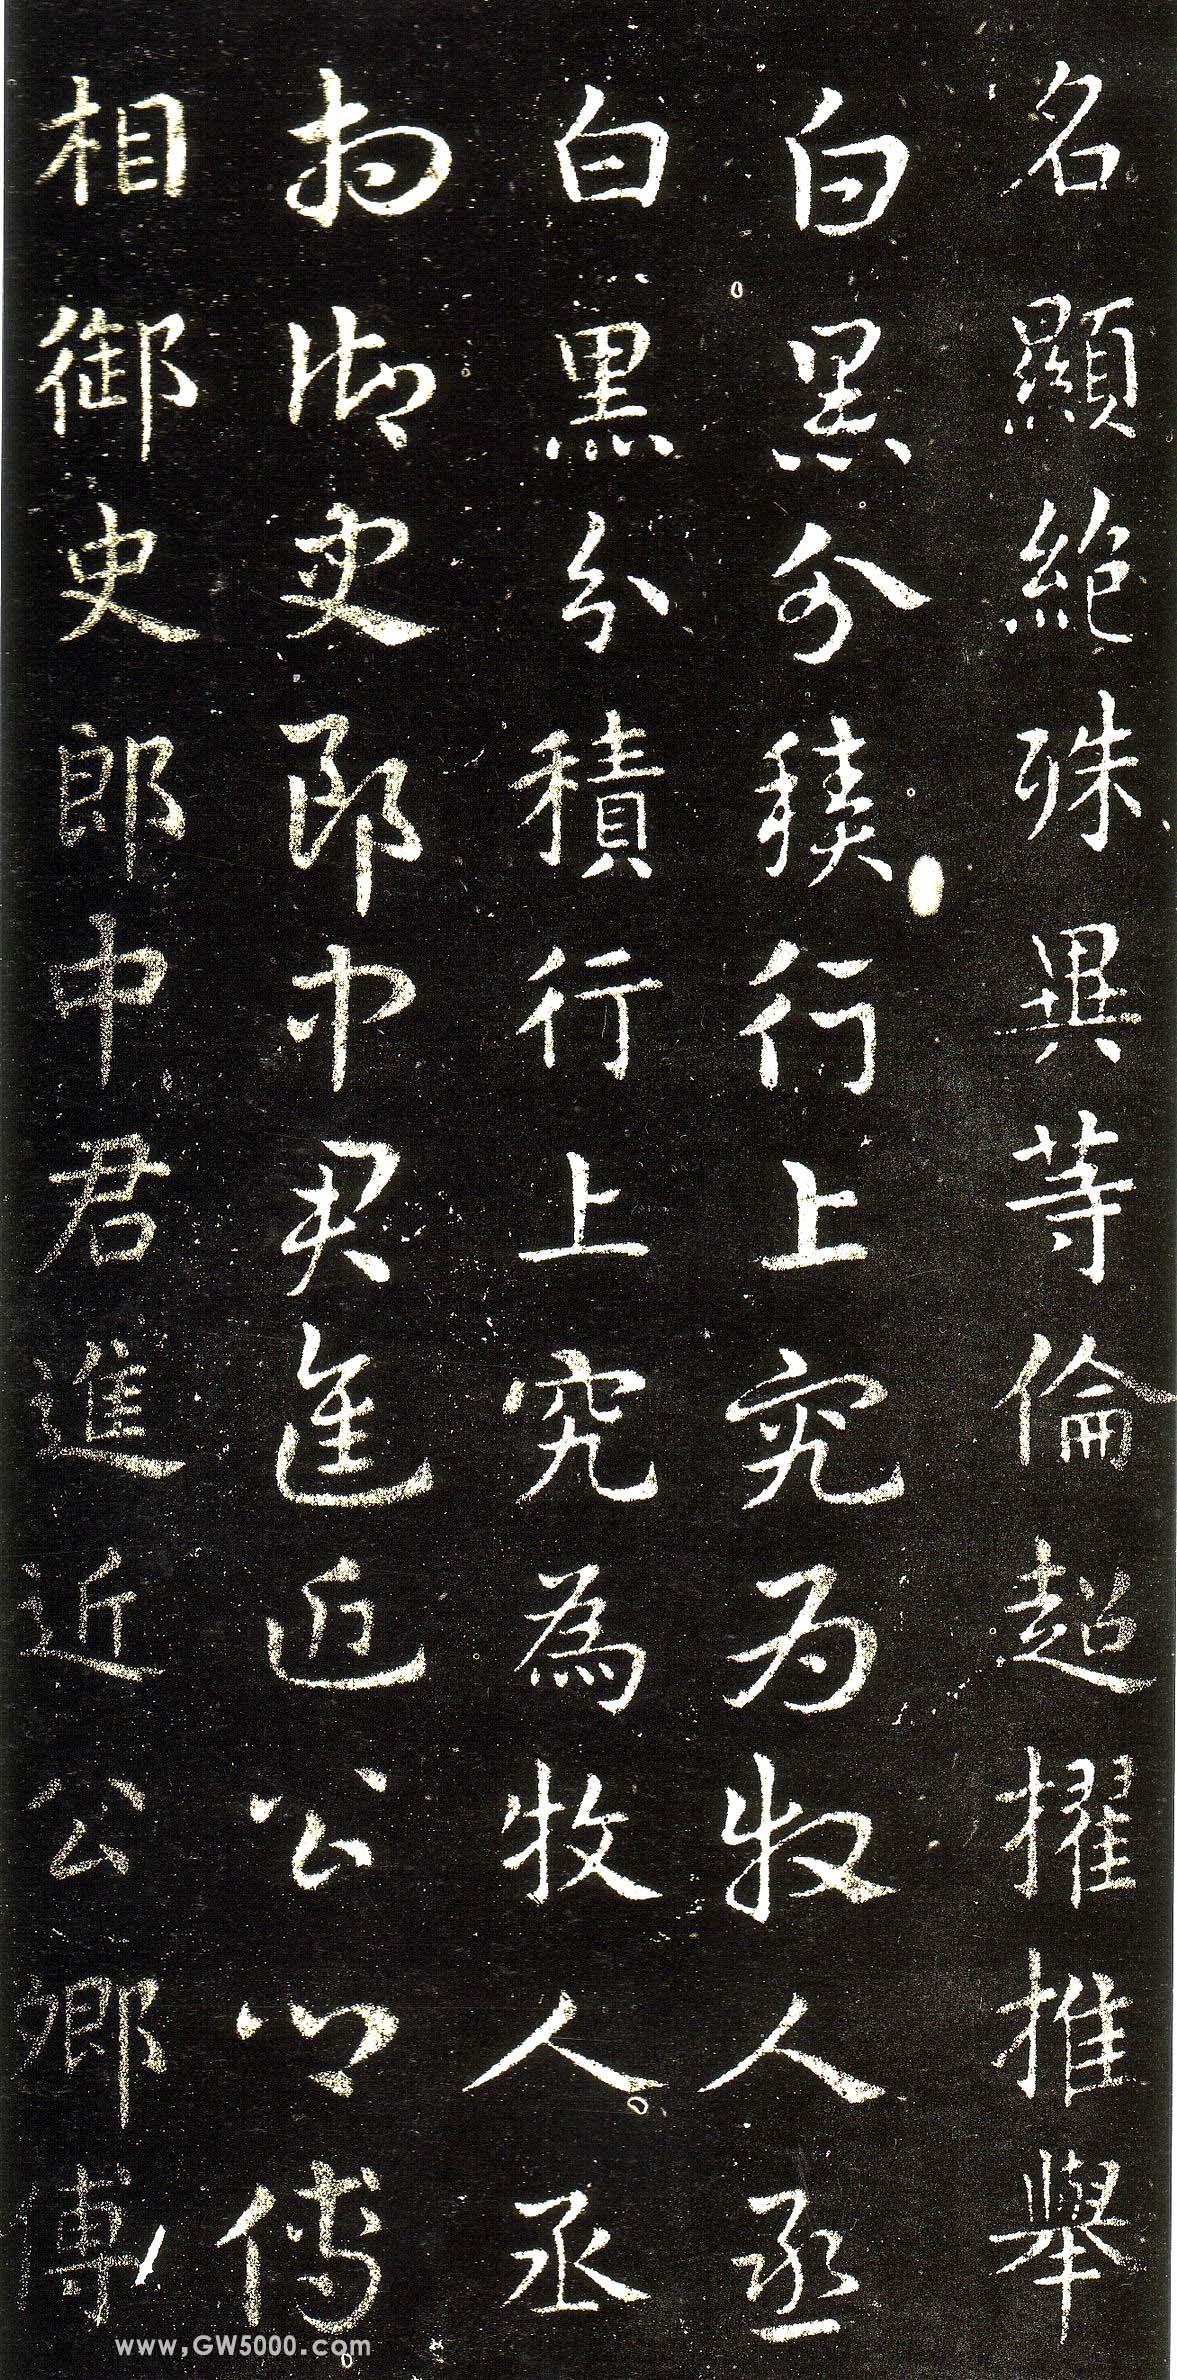 名顯絕殊異等倫超擢推舉
白黑分積行上究為牧人丞
白黑分積行上究為牧人丞
相御史郎中君進近公卿傅
相御史郎中君進近公卿傅
www.GW5000.com